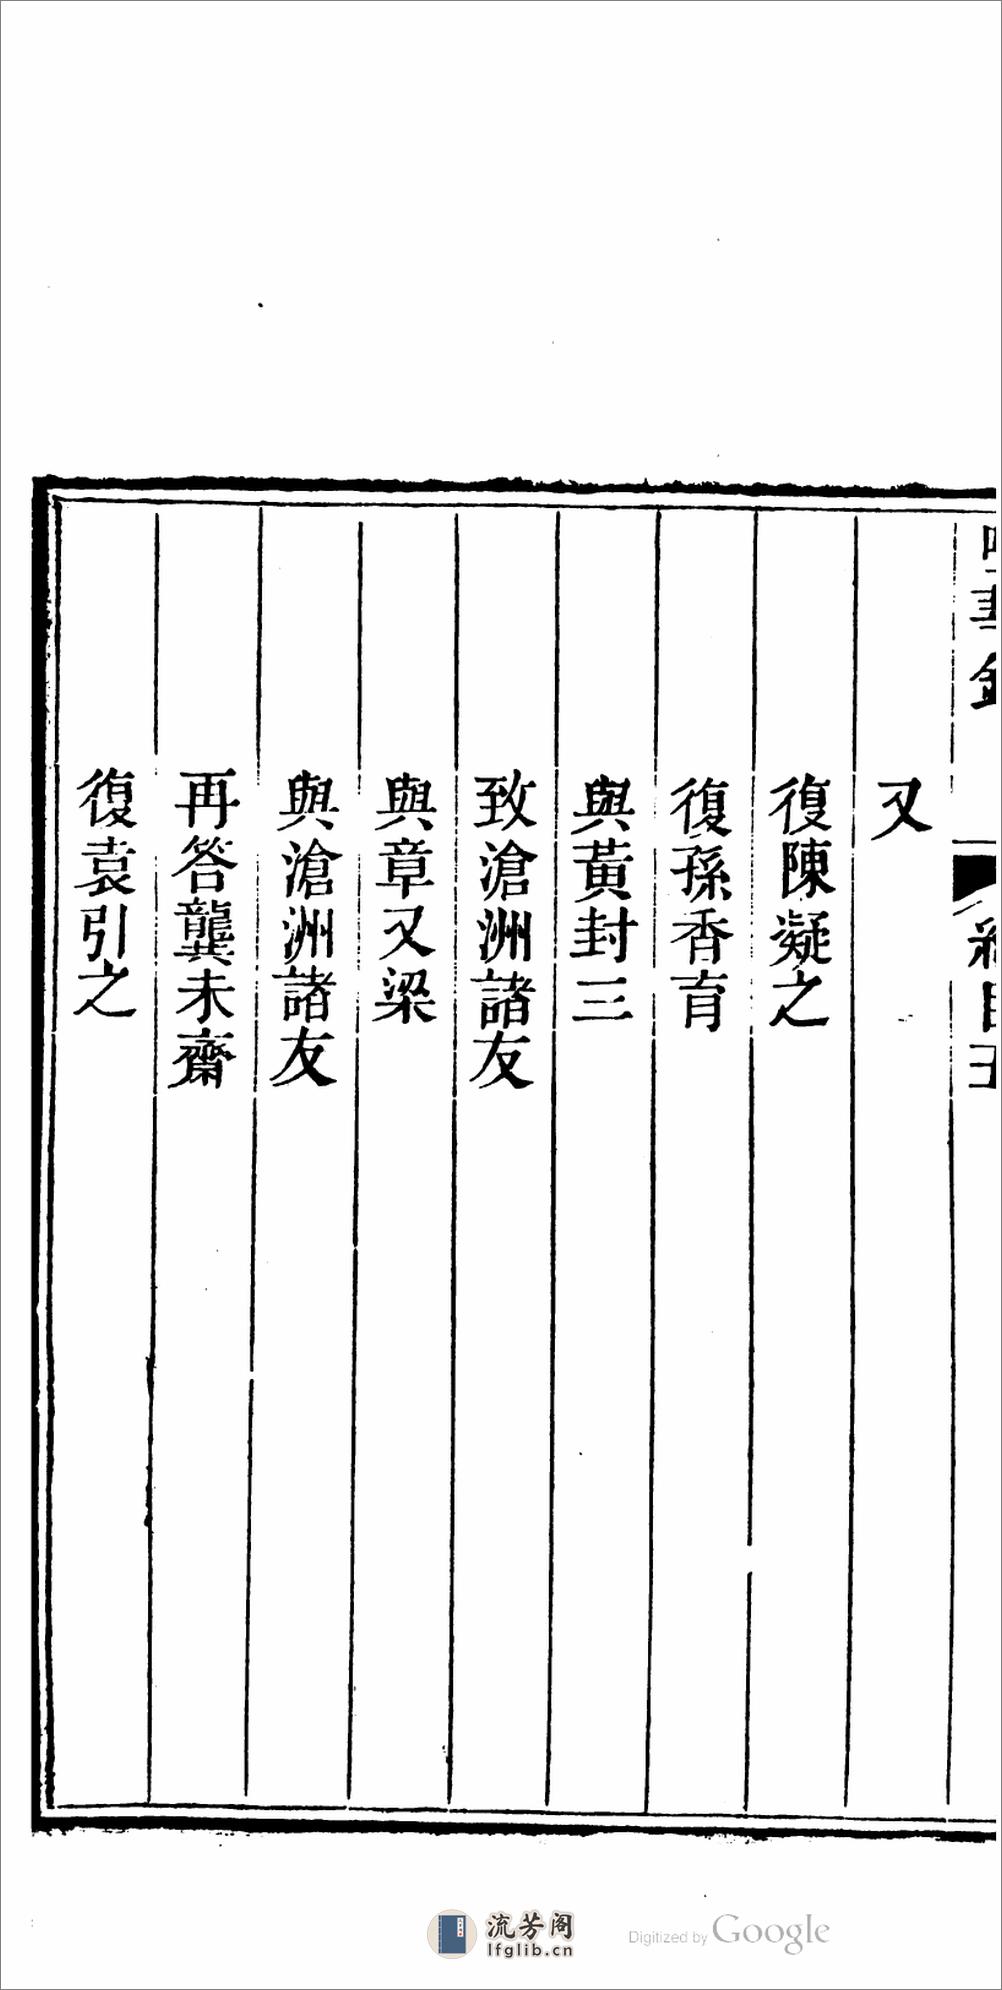 又
復陳凝之
復孫香育
與黃封三
致滄洲諸友
與章又梁
與滄洲諸友
再答龔未齋
復袁引之
流芳阁
lfglib.cn
Digitized by Google